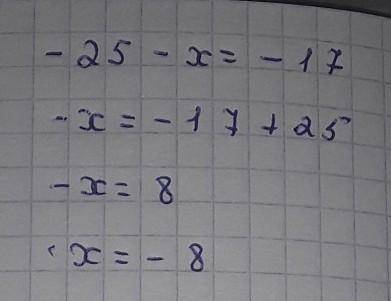 - 25 - x = - 17
- x = - 17 + 25
- x = 8
x = - 8